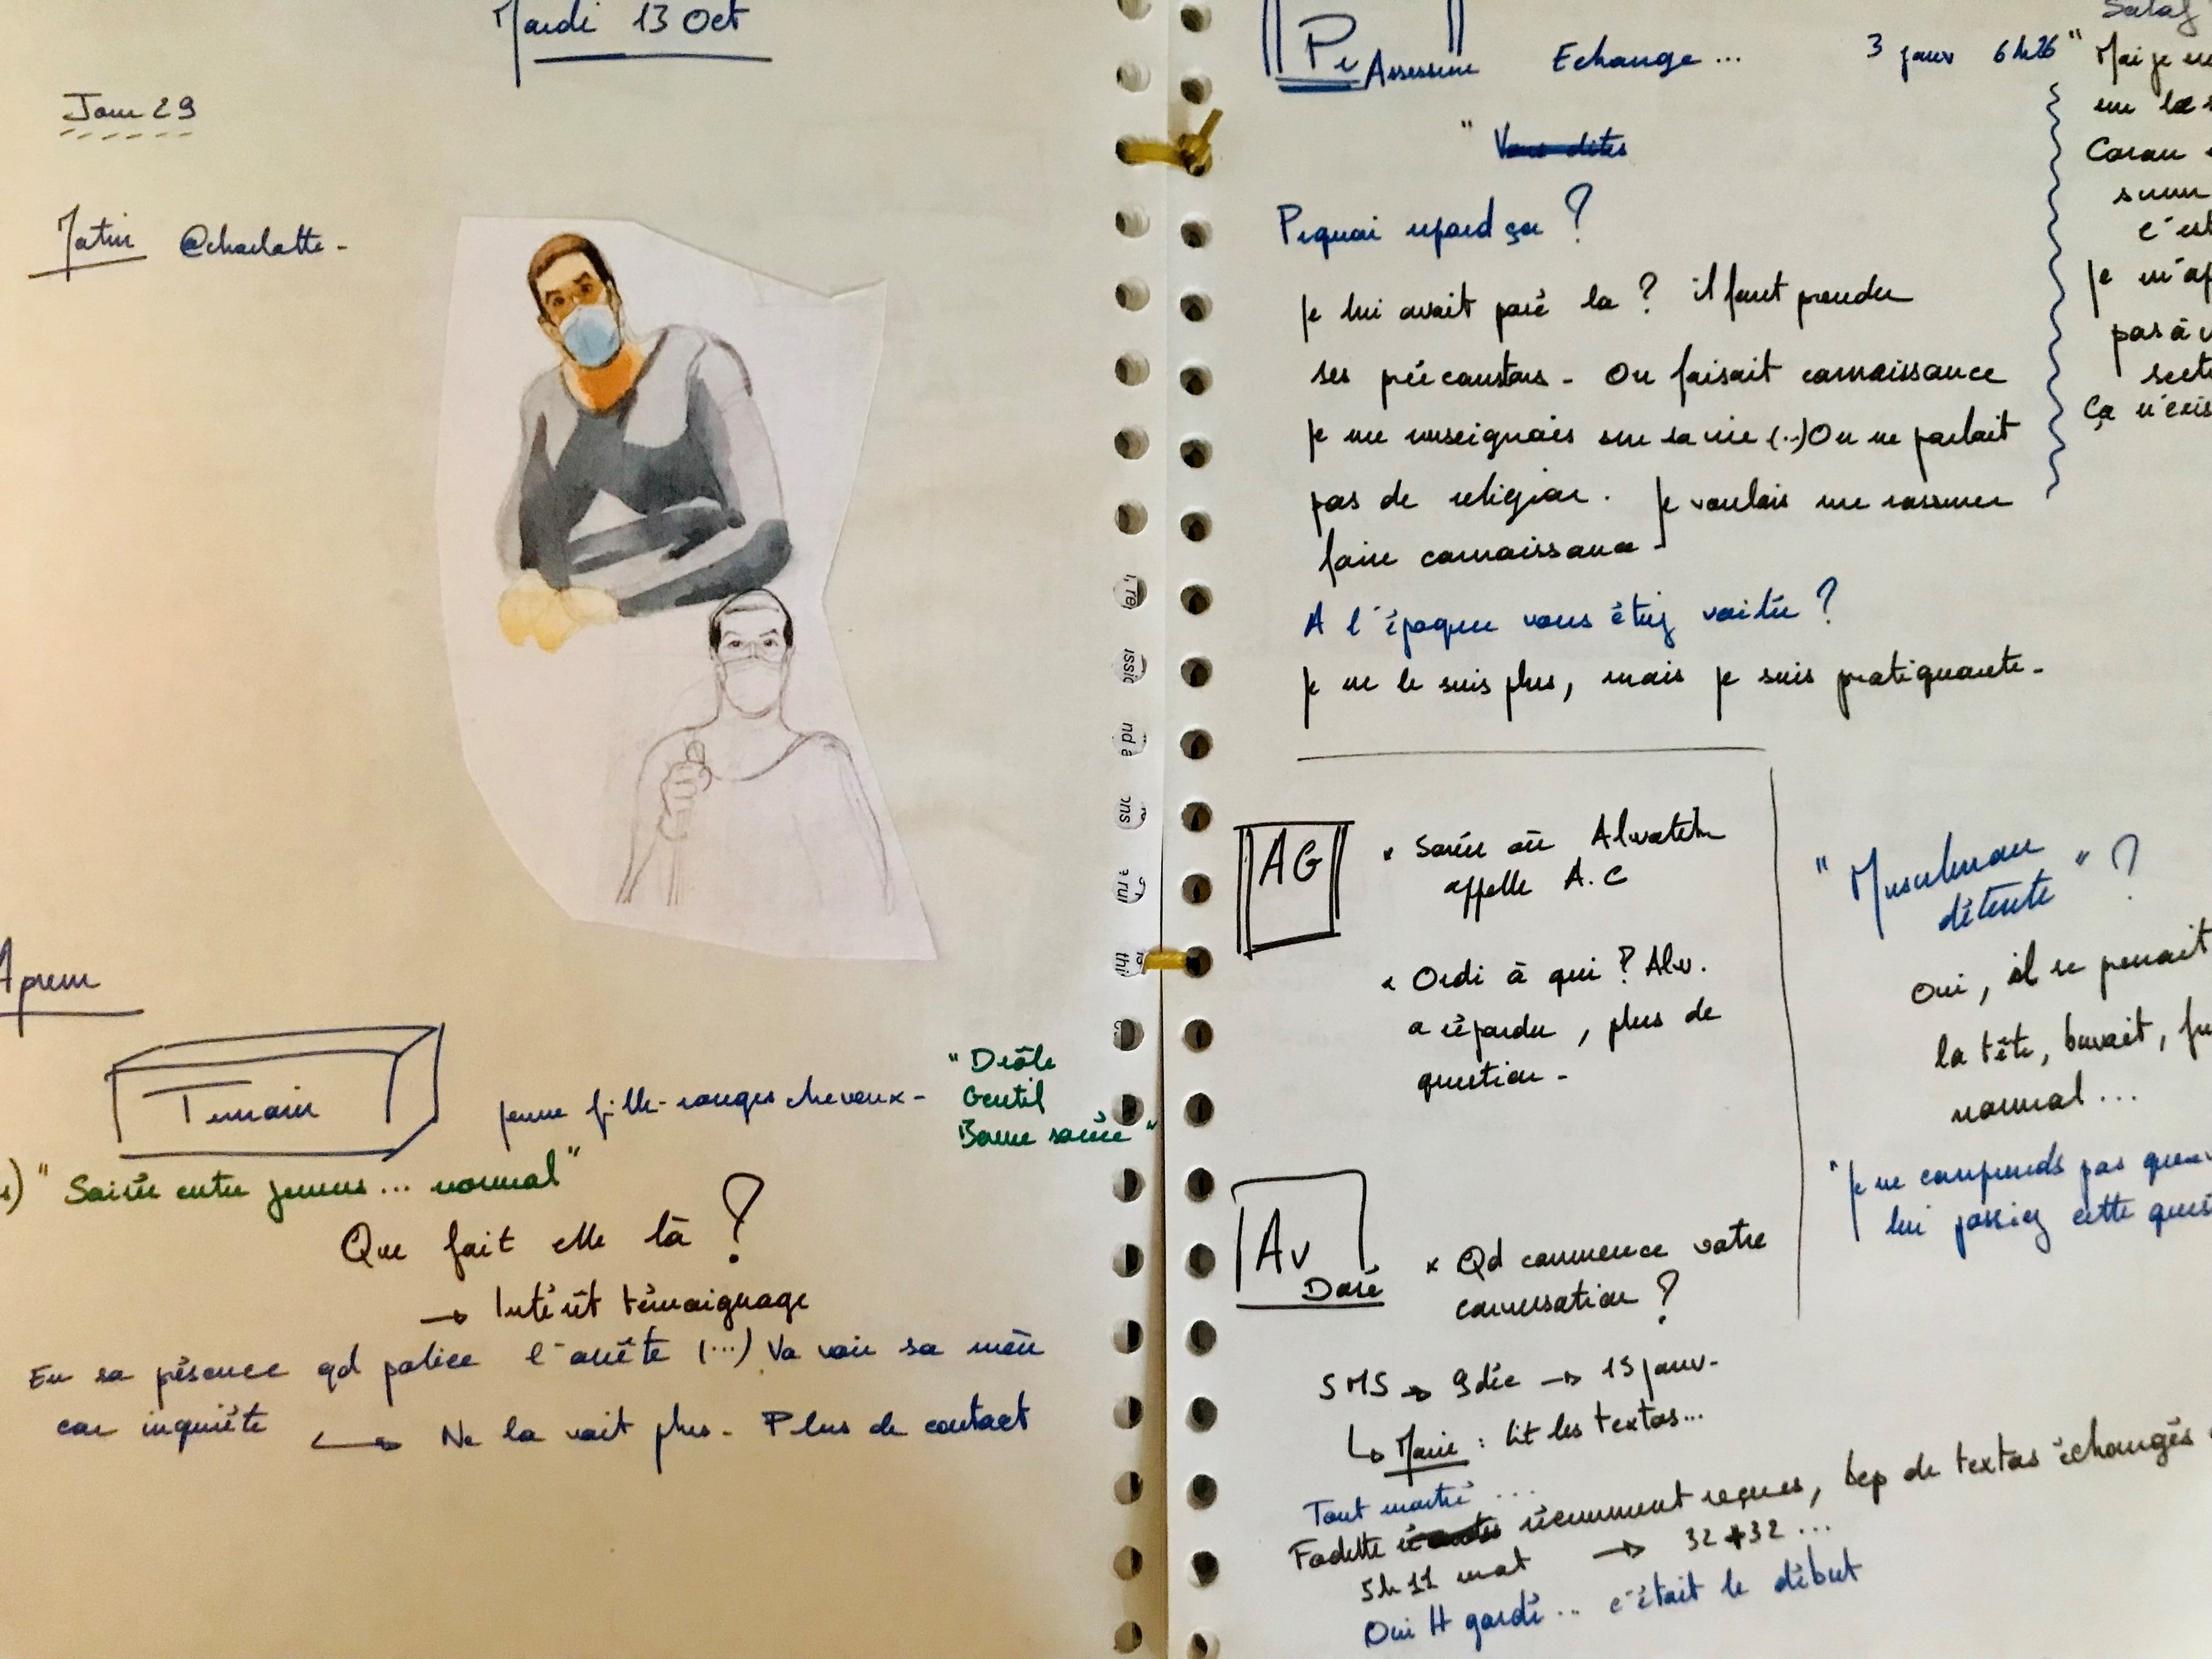 Mardi 13 Oct
Jour 29
Matin @charlotte-
Aprem
Temoin
jeune fille-rouges cheveux-
"Drôle
Gentil
Bonne soirée"
"Soirée entre jeunes... normal"
Que fait elle là ?
→ Intérêt témoignage
En sa présence qd police l'arrête (...) Va voir sa mère
car inquiète → Ne la voit plus. Plus de contact
Pr Assesseure Echange... 3 janv 6h26
" Vous dites
Prquoi répond ça ?
Je lui avait posé la ? il faut prendre
ses précautions - On faisait connaissance
Je me renseignais sur sa vie (...) On ne parlait
pas de religion. Je voulais me rassurer
faire connaissance
A l'époque vous étiez voilée ?
Je ne le suis plus, mais je suis pratiquante-
"Mai je
Coran
c'est
je m'ap
pas à
secte
ça n'exis
AG
x Soirée où Alwatik
appelle A.C
x Ordi à qui ? Alw.
a répondu, plus de
question-
"Musulman
détente" ?
Oui, il se prenait
la tête, buvait, fu
normal...
"Je ne comprends pas que
lui posiez cette quest
Av Doré
x Qd commence votre
conversation ?
SMS → 9 déc → 15 janv-
↳ Marie : lit les textos...
Tout montré ...
Fadette récemment reçues, bcp de textos échangés
5h11 mat → 32+32...
Oui H gardé... c'était le début